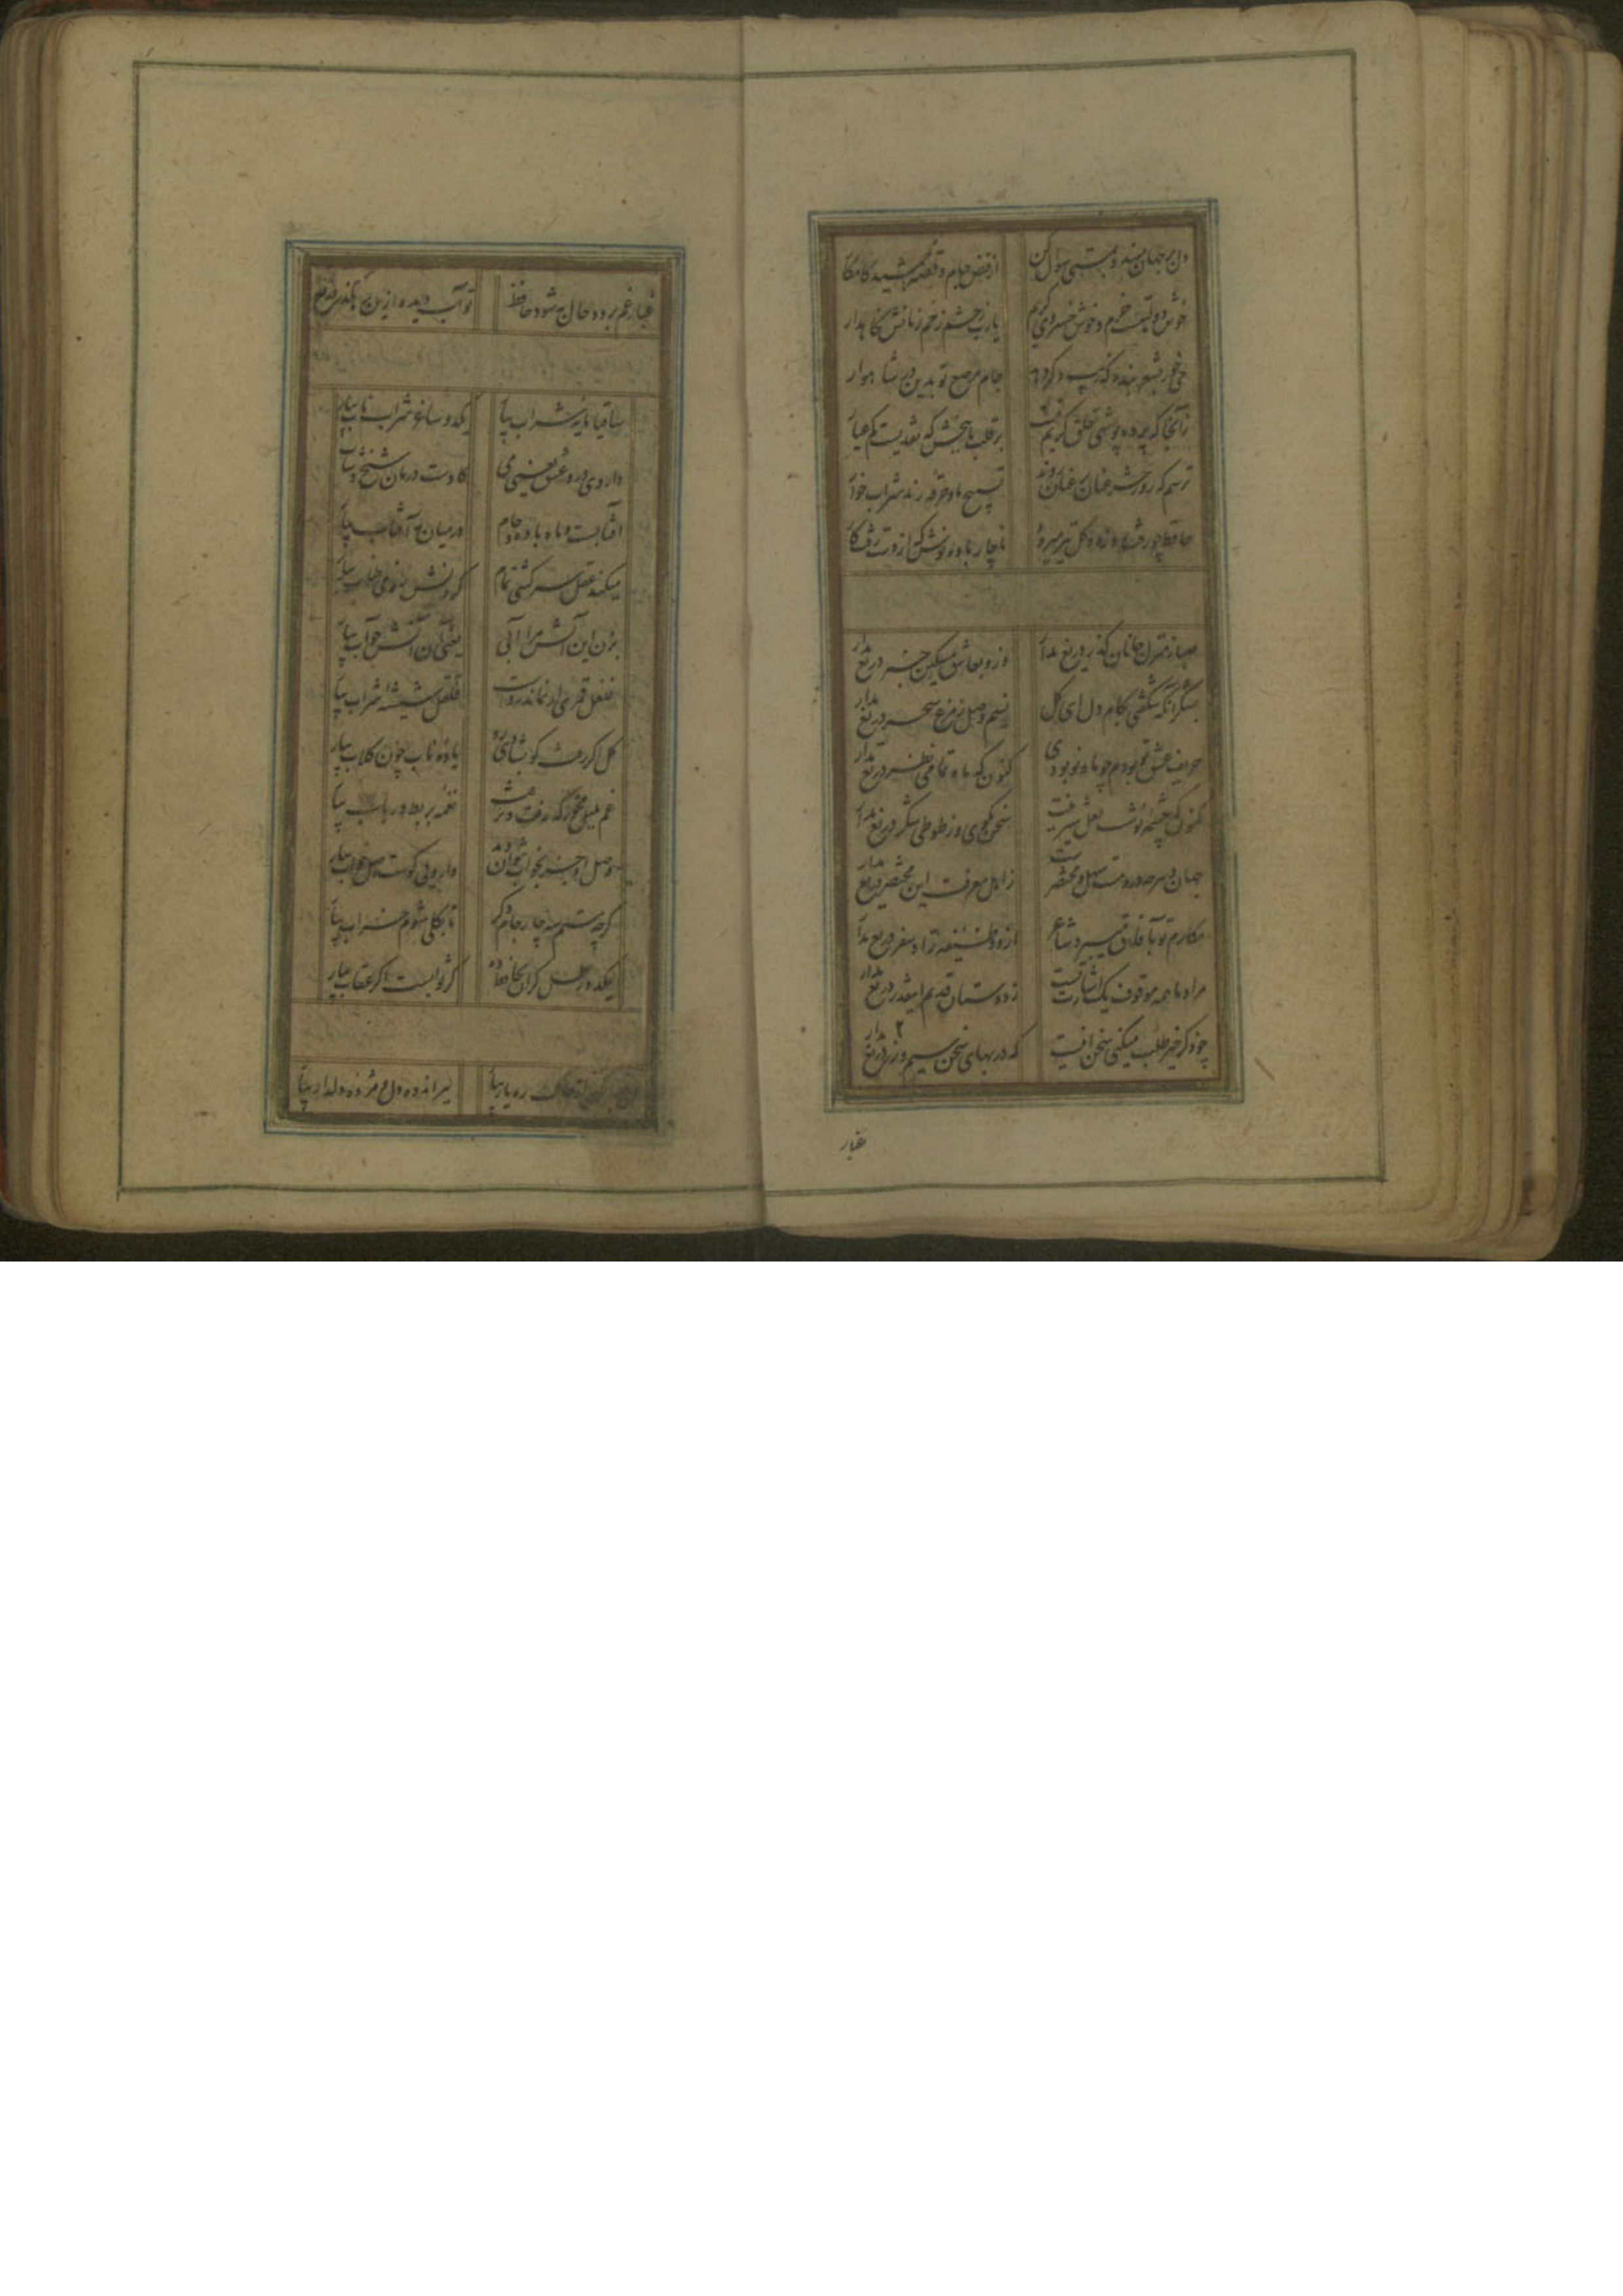 دل در جهان مبند و بمستی سوال کن
از فیض جام و قصه جمشید کامکار
خوش دولتیست خرم و خوش خسروی کریم
یارب ز چشم زخم زمانش نکاه دار
می خور بشعر بنده که زیبی دگر دهد
جام مرصع تو بدین در شاهوار
زآنجا که پرده پوشی خلق کریم تست
بر قلب ما ببخش که نقدیست کم عیار
ترسم که روز حشر عنان بر عنان روند
تسبیح ما و خرقه رند شراب خوار
حافظ چو رفت روزه و کل نیز میرود
ناچار باده نوش که از دست رفت کار
صبا ز منزل جانان کذر دریغ مدار
وزو بعاشق مسکین خبر دریغ مدار
بشکر آنکه شکفتی بکام دل ای کل
نسیم وصل ز مرغ سحر دریغ مدار
حریف عشق تو بودم چو ماه نو بودی
کنون که ماه تمامی نظر دریغ مدار
کنون که چشمه نوشست لعل شیرینت
سخن بکوی و ز طوطی شکر دریغ مدار
جهان و هرچه درو هست سهل و مختصرست
ز اهل معرفت این مختصر دریغ مدار
مکارم تو بآفاق میبرد شاعر
ازو وظیفه و زاد سفر دریغ مدار
مراد ما همه موقوف یک اشارت تست
ز دوستان قدیم اینقدر دریغ مدار
چو ذکر خیر طلب میکنی سخن اینست
که در بهای سخن سیم و زر دریغ مدار
غبار
غبار غم برود حال به شود حافظ
تو آب دیده ازین رهکذر دریغ مدار
ساقیا مایه شراب بیار
یکدو ساغر شراب ناب بیار
داروی درد عشق یعنی می
کاوست درمان شیخ و شاب بیار
آفتابست و ماه باده و جام
در میان مه آفتاب بیار
میکند عقل سرکشی تمام
کردنش را ز می طناب بیار
بزن این آتش مرا آبی
یعنی آن آتش چو آب بیار
غلغل قمری ار نماند رواست
قلقل شیشه شراب بیار
کل اکر رفت کو بشادی رو
باده ناب چون کلاب بیار
غم بلبل مخور که رفت
نغمه بربط و رباب بیار
وصل او جز بخواب نتوان دید
دارویی کوست اصل خواب بیار
کرچه مستم سه چار جام دکر
تا بکلی شوم خراب بیار
یکدو رطل کران بحافظ ده
کر ثوابست اکر عقاب بیار
خاک ره یار بیار
ببر اندوه دل و مژده دلدار بیار